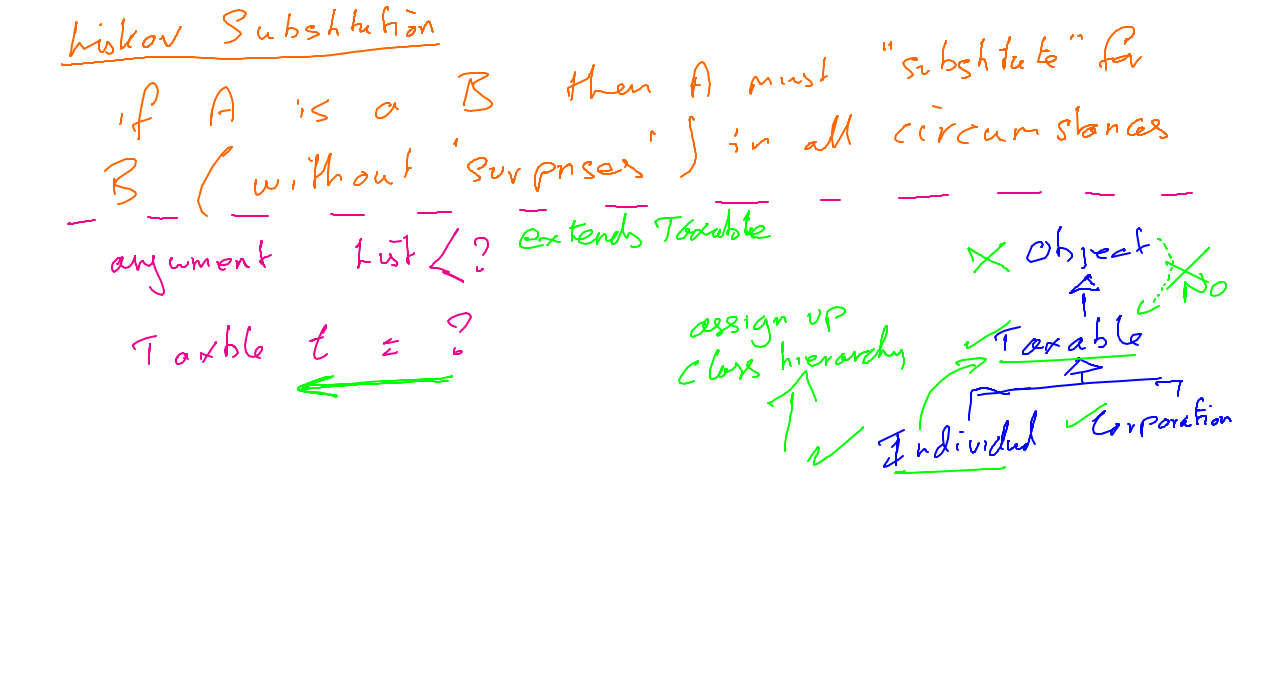 Liskov Substitution
if A is a B then A must "substitute" for
B (without 'surprises') in all circumstances
argument List <? extends Taxable
Taxble t = ?
assign up
class hierarchy
Object
No
Taxable
Individual
Corporation